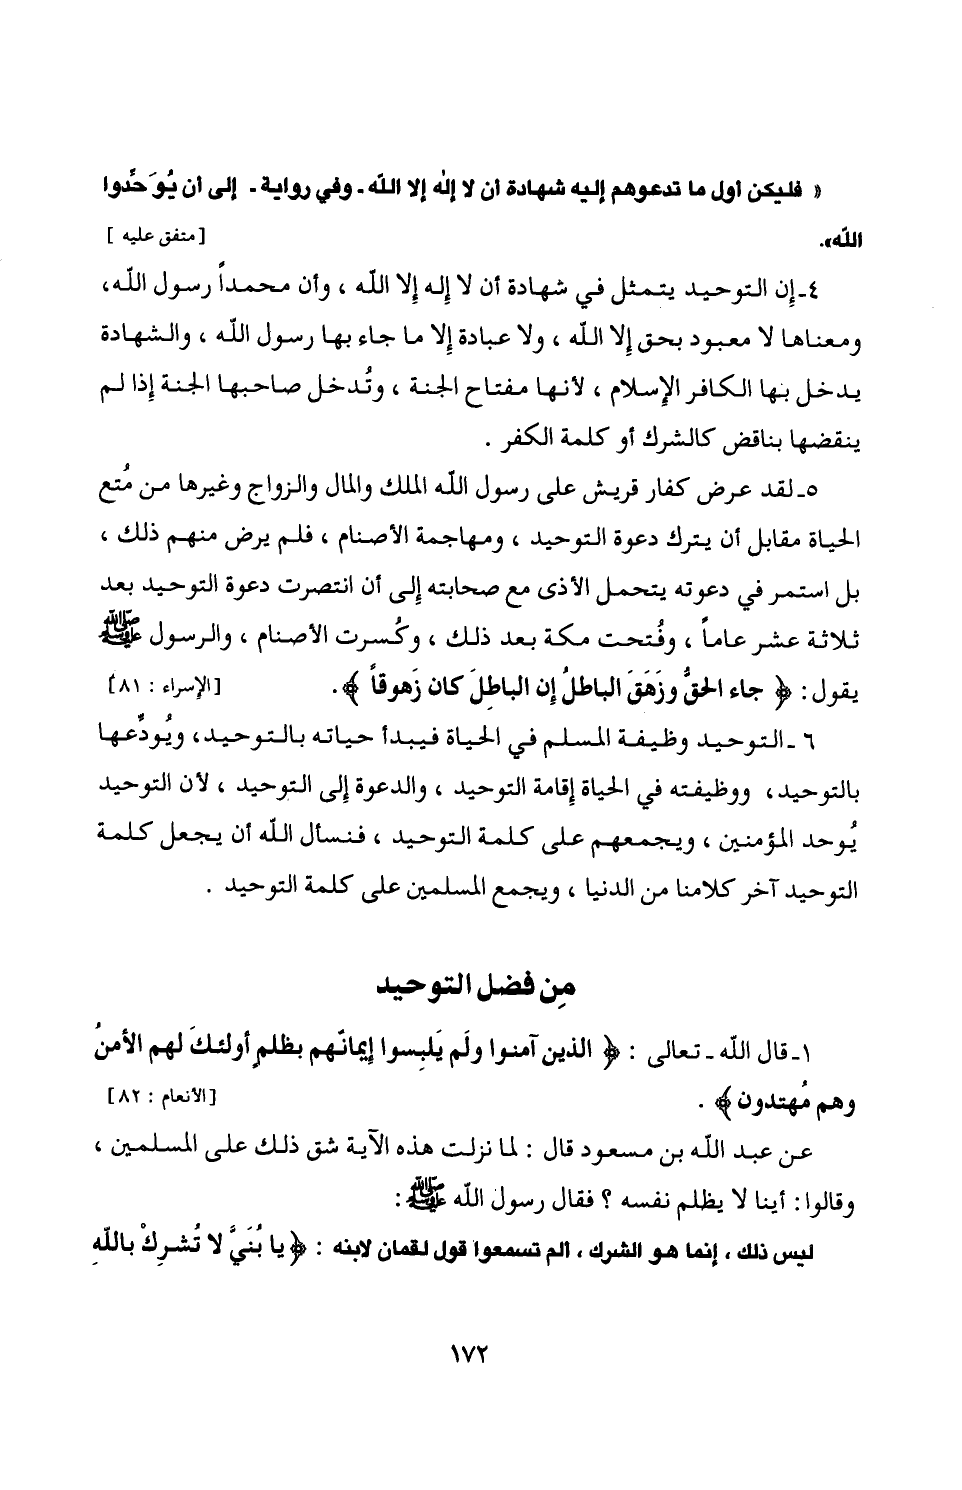 « فليكن أول ما تدعوهم إليه شهادة أن لا إله إلا الله - وفي رواية - إلى أن يُوَحِّدوا
الله». [متفق عليه]
٤ـ إن التوحيد يتمثل في شهادة أن لا إله إلا الله ، وأن محمداً رسول الله،
ومعناها لا معبود بحق إلا الله ، ولا عبادة إلا ما جاء بها رسول الله ، والشهادة
يدخل بها الكافر الإسلام ، لأنها مفتاح الجنة ، وتُدخل صاحبها الجنة إذا لم
ينقضها بناقض كالشرك أو كلمة الكفر .
٥ـ لقد عرض كفار قريش على رسول الله الملك والمال والزواج وغيرها من مُتع
الحياة مقابل أن يترك دعوة التوحيد ، ومهاجمة الأصنام ، فلم يرض منهم ذلك ،
بل استمر في دعوته يتحمل الأذى مع صحابته إلى أن انتصرت دعوة التوحيد بعد
ثلاثة عشر عاماً ، وفُتحت مكة بعد ذلك ، وكُسرت الأصنام ، والرسول ﷺ
يقول: ﴿ جاء الحقُّ وزَهَقَ الباطلُ إن الباطِلَ كان زَهوقاً ﴾. [الإسراء : ٨١]
٦ ـ التوحيد وظيفة المسلم في الحياة فيبدأ حياته بالتوحيد، ويُودِّعها
بالتوحيد، ووظيفته في الحياة إقامة التوحيد ، والدعوة إلى التوحيد ، لأن التوحيد
يُوحد المؤمنين ، ويجمعهم على كلمة التوحيد ، فنسأل الله أن يجعل كلمة
التوحيد آخر كلامنا من الدنيا ، ويجمع المسلمين على كلمة التوحيد .
مِن فضل التوحيد
١ـ قال الله ـ تعالى : ﴿ الذين آمنوا ولَم يَلبِسوا إيمانَهم بظلمٍ أولئكَ لهم الأمنُ
وهم مُهتدون ﴾ . [الأنعام : ٨٢]
عن عبد الله بن مسعود قال : لما نزلت هذه الآية شق ذلك على المسلمين ،
وقالوا: أينا لا يظلم نفسه ؟ فقال رسول الله ﷺ :
ليس ذلك ، إنما هو الشرك ، ألم تسمعوا قول لقمان لابنه : ﴿ يا بُنَيَّ لا تُشرِكْ باللهِ
١٧٢